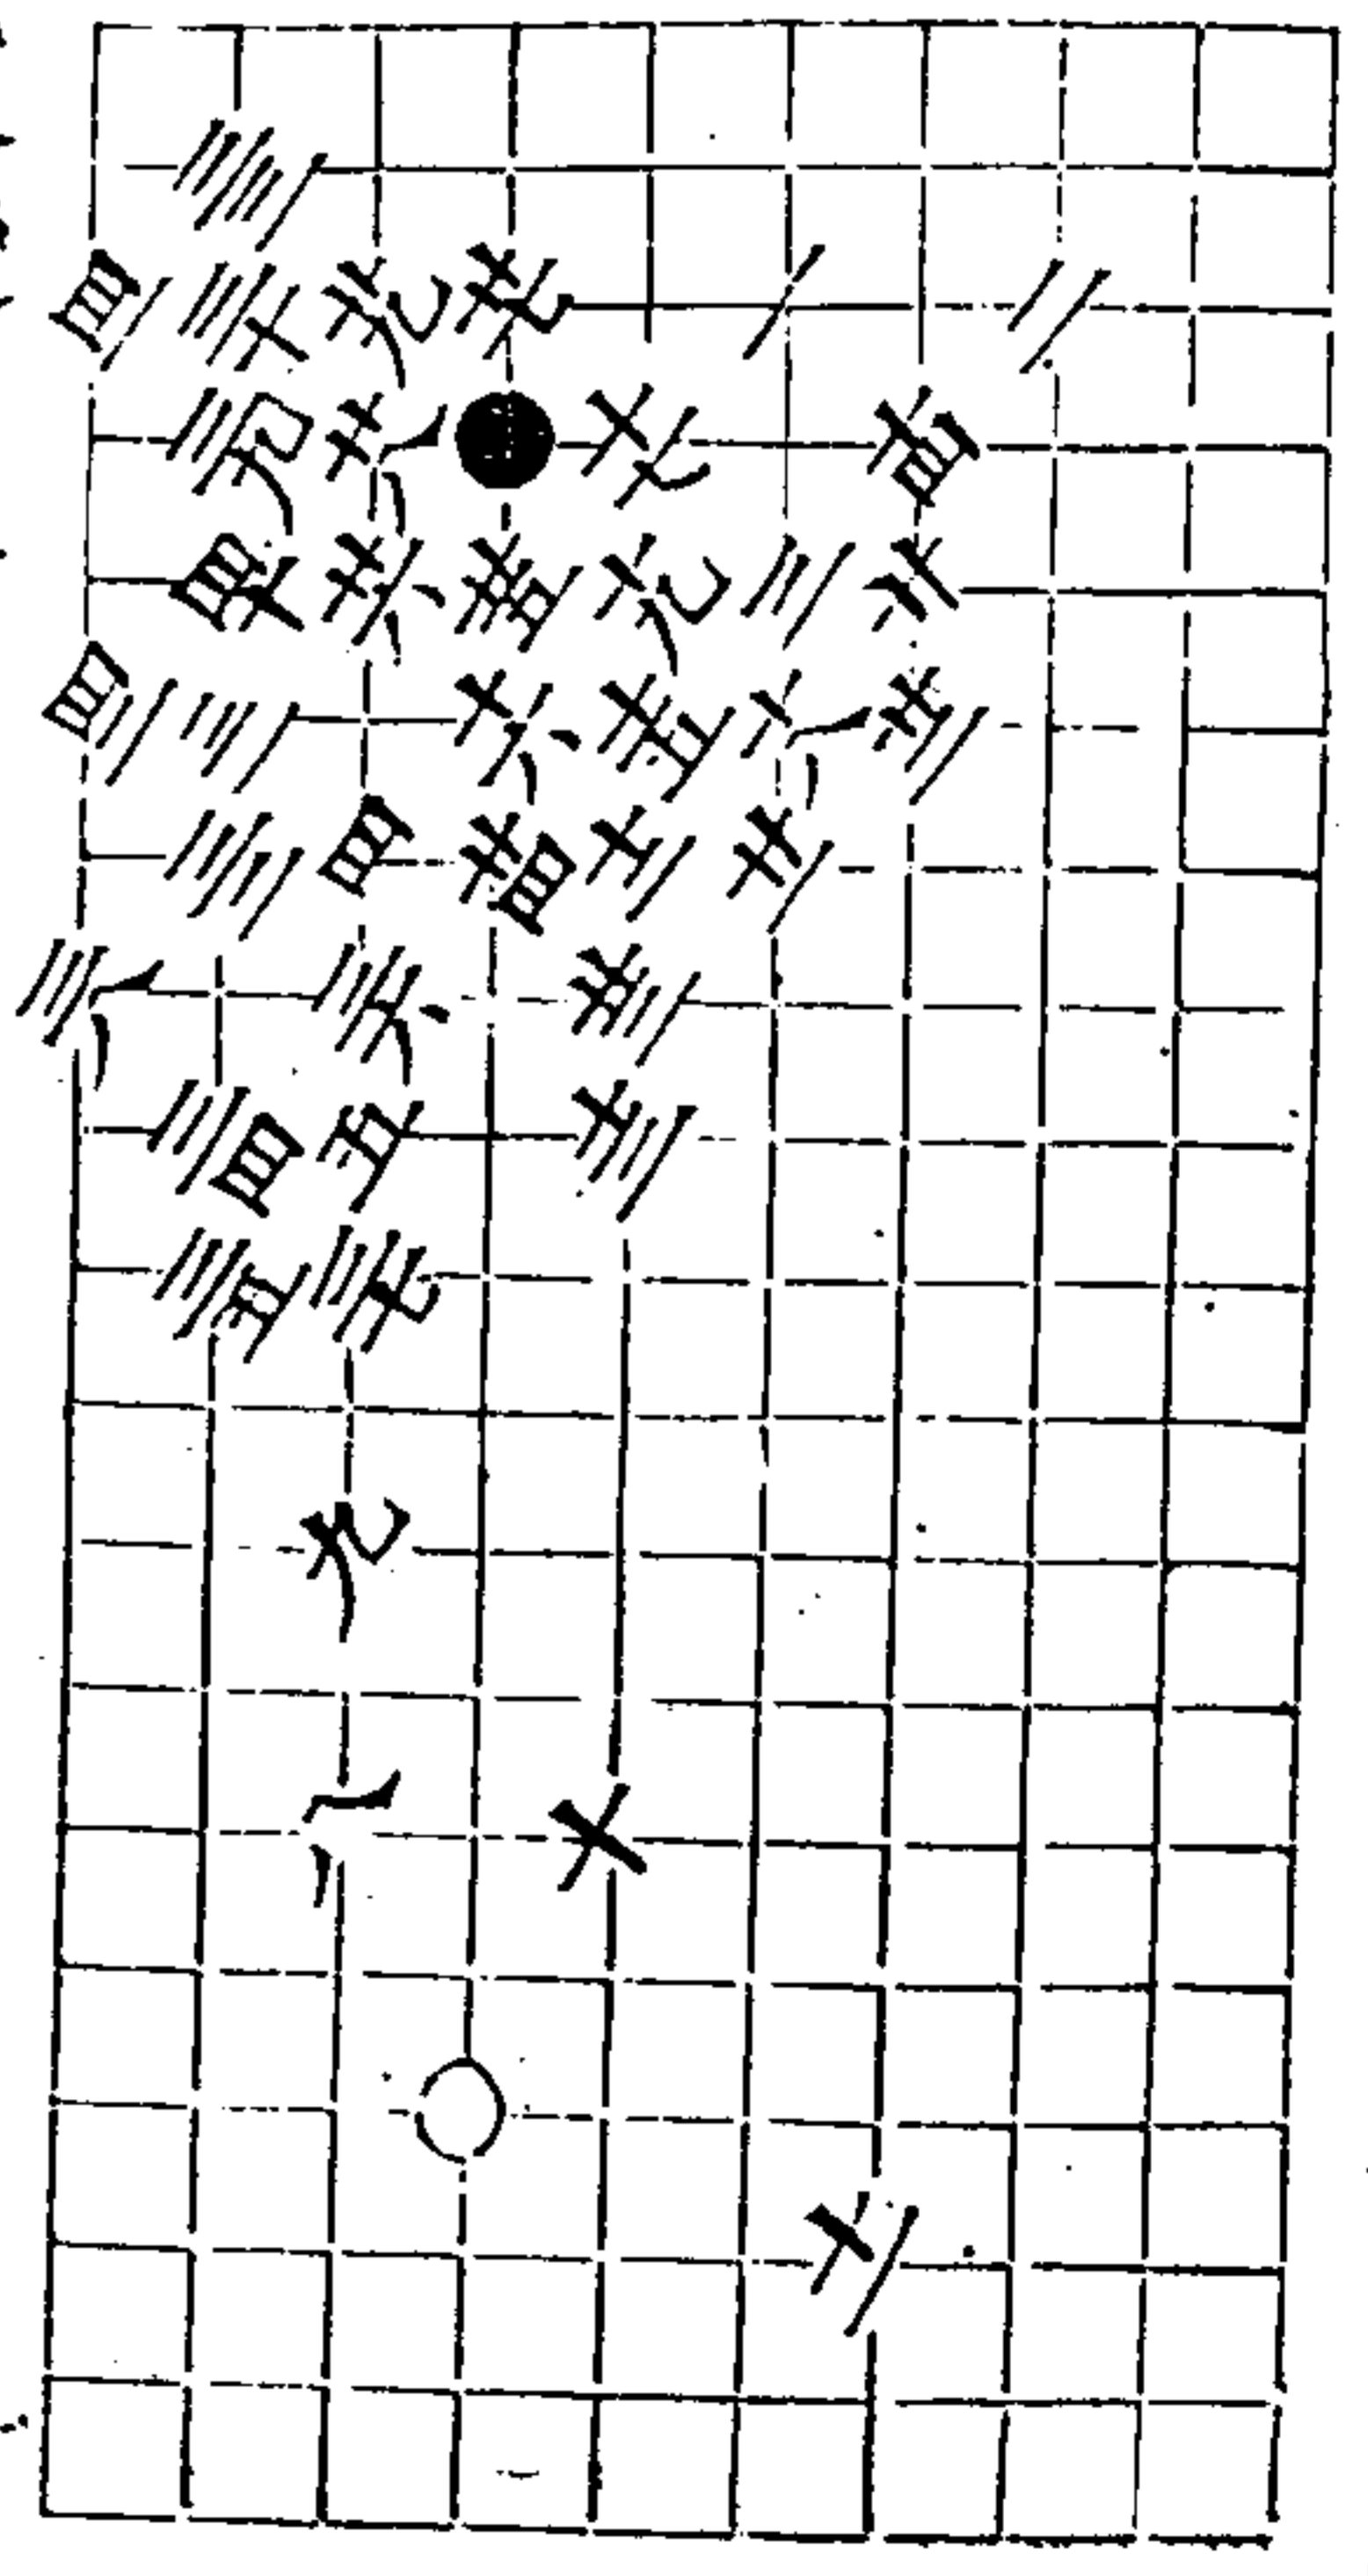 三三
四一 三十 廿九 廿七 一 二
三九 廿八 十七 十四
四十 廿六 廿五 十九 三 二十
四二 三一 十六 十五 十八 廿二
三二 四 廿四 十二 廿一
三八 三六 廿三
三四 五 十三
三五 三七
九
八 十
十一